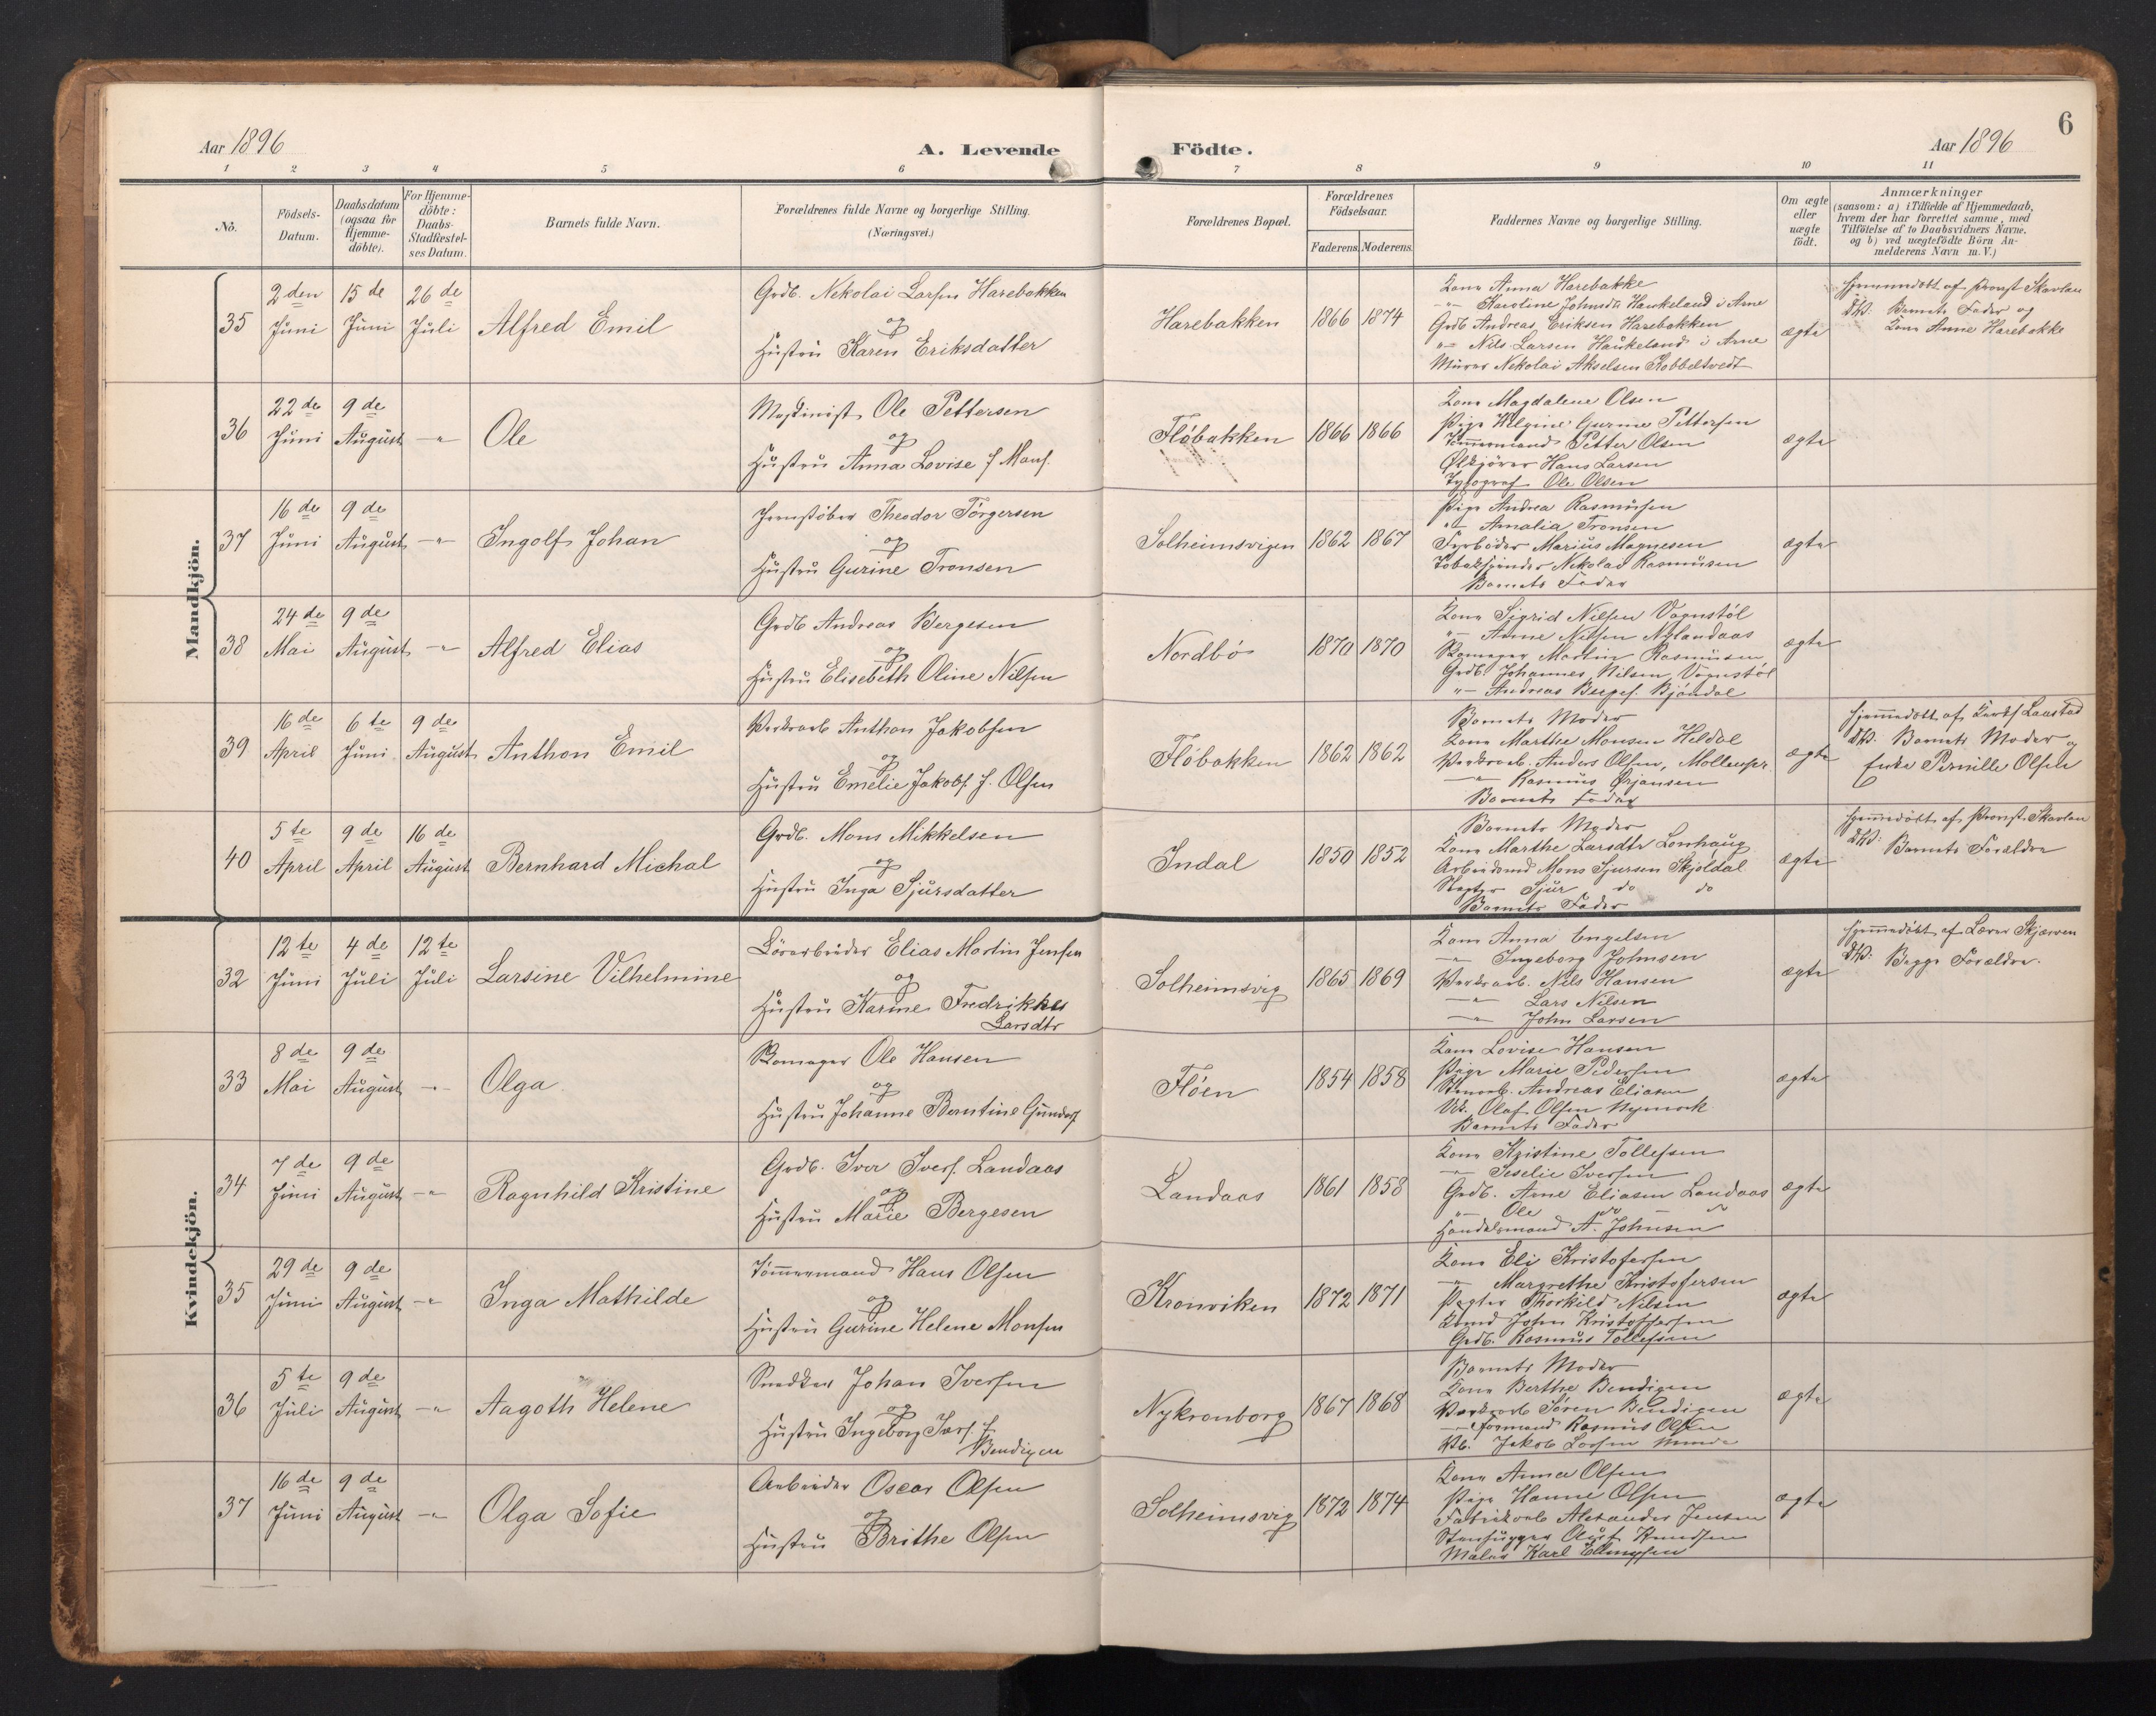 Aar 1896
A. Levende Födte.
Aar 1896
6
1 2 3 4 5 6 7 8 9 10 11
No.
Födsels-Datum.
Daabsdatum (ogsaa for Hjemme-döbte).
For Hjemme-döbte: Daabs-Stadfæstel-ses Datum.
Barnets fulde Navn.
Forældrenes fulde Navne og borgerlige Stilling.
(Næringsvei.)
Forældrenes Bopæl.
Forældrenes Födselsaar.
Faderens. Moderens.
Faddernes Navne og borgerlige Stilling.
Om ægte eller uægte födt.
Anmærkninger
(saasom: a) i Tilfælde af Hjemmedaab,
hvem der har forrettet samme, med
Tilföielse af to Daabsvidners Navne,
og b) ved uægtefödte Börn An-
melderens Navn m. V.)
Mandkjön.
35
2den Juni
15de Juni
26de Juli
Alfred Emil
Grdb. Nekolai Larsen Harebakken
og
Hustru Karen Eriksdatter
Harebakken
1866 1874
Kone Anna Harebakke
-"- Karoline Johnsdtr Haukeland i Arne
Grdb Andreas Eriksen Harebakken
"- Nils Larsen Haukeland i Arne
Murer Nekolai Akselsen Kobbeltvedt
ægte
Hjemmedöbt af Provst Skavlan
DV: Barnets Fader og
Kone Anne Harebakke
36
22de Juni
9de August
-"-
Ole
Maskinist Ole Pettersen
og
Hustru Anna Lovise f Mons.
Flöbakken
1866 1866
Kone Magdalene Olsen
Pige Helgine Gurine Pettersen
Tömmermand Petter Olsen
Ølkjörer Hans Larsen
Typograf Ole Olsen
ægte
37
16de Juni
9de August
-"-
Ingolf Johan
Jernstöber Theodor Törgersen
og
Hustru Gurine Tronsen
Solheimsvigen
1862 1867
Pige Andrea Rasmussen
"- Amalia Tronsen
Fyrböder Marius Magnesen
Nekolai Rasmussen
Barnets Fader
ægte
38
24de Mai
9de August
-"-
Alfred Elias
Grdb Andreas Bergesen
og
Hustru Elisebeth Oline Nilsen
Nordbö
1870 1870
Kone Sigrid Nilsen Vognstöl
"- Anne Nilsen Nylandaas
Skomager Martin Rasmussen
Grdb Johannes Nilsen Vognstöl
"- Andreas Berges. Bjöndal
ægte
39
16de April
6te Juni
9de August
Anthon Emil
Værksarb Anthon Jakobsen
og
Hustru Emelie Jakobs. f. Olsen
Flöbakken
1862 1862
Barnets Moder
Kone Marthe Monsen Heldal
Værksarb. Anders Olsen, Mollenpr.
-"- Rasmus Ørjansen
Barnets Fader
ægte
Hjemmedöbt af Laustad
DV. Barnets Moder og
Enke Pernille Olsen
40
5te April
9de April
16de August
Bernhard Michal
Grdb. Mons Mikkelsen
og
Hustru Inga Sjursdatter
Indal
1850 1852
Barnets Moder
Kone Marthe Larsdtr Lonhaug
Arbeidsmd Mons Sjursen Skjöldal
Sjur do do
Barnets Fader
ægte
Hjemmedöbt af Provst Skavlan
DV: Barnets Forældre
Kvindekjön.
32
12te Juni
4de Juli
12te Juli
Larsine Vilhelmine
Elias Martin Jensen
og
Hustru Karine Fredrikke
Larsdtr
Solheimsvig
1865 1869
Kone Anna Engelsen
-"- Ingeborg Johnsen
Værksarb. Nils Hansen
-"- Lars Nilsen
-"- John Larsen
ægte
Hjemmedöbt af Lærer Skjerven
DV: Begge Forældre.
33
8de Mai
9de August
-"-
Olga
Skomager Ole Hansen
og
Hustru Johanne Berntine Gunders.
Flöen
1854 1858
Kone Lovise Hansen
Pige Marie Pedersen
Andreas Eliasen
Olaf Olsen Nymark
Barnets Fader
ægte
34
7de Juni
9de August
-"-
Ragnhild Kristine
Grdb. Iver Ivers. Landaas
og
Hustru Marie Bergesen
Landaas
1861 1858
Kone Kristine Tollefsen
-"- Seselie Iversen
Grdb. Arne Eliasen Landaas
"- Ole do -
Handelsmand A. Johnsen
ægte
35
29de Juni
9de August
-"-
Inga Mathilde
Tömmermand Hans Olsen
og
Hustru Gurine Helene Monsen
Kronviken
1872 1871
Kone Eli Kristofersen
-"- Margrethe Kristofersen
Pagter Thorkild Nilsen
John Kristoffersen
Grdb. Rasmus Tollefsen
ægte
36
5te Juli
9de August
-"-
Aagoth Helene
Snedker Johan Iversen
og
Hustru Ingeborg Ivers. f.
Bendixen
Nykronborg
1867 1868
Barnets Moder
Kone Berthe Bendixen
Værksarb Sören Bendixen
Formand Rasmus Olsen
Jakob Larsen
ægte
37
16de Juni
9de August
-"-
Olga Sofie
Arbeider Oscar Olsen
og
Hustru Brithe Olsen
Solheimsvig
1872 1874
Kone Anna Olsen
Pige Hanne Olsen
Fabrikarb Alexander Jensen
Stenhugger Knudsen
Maler Karl Ellingsen
ægte